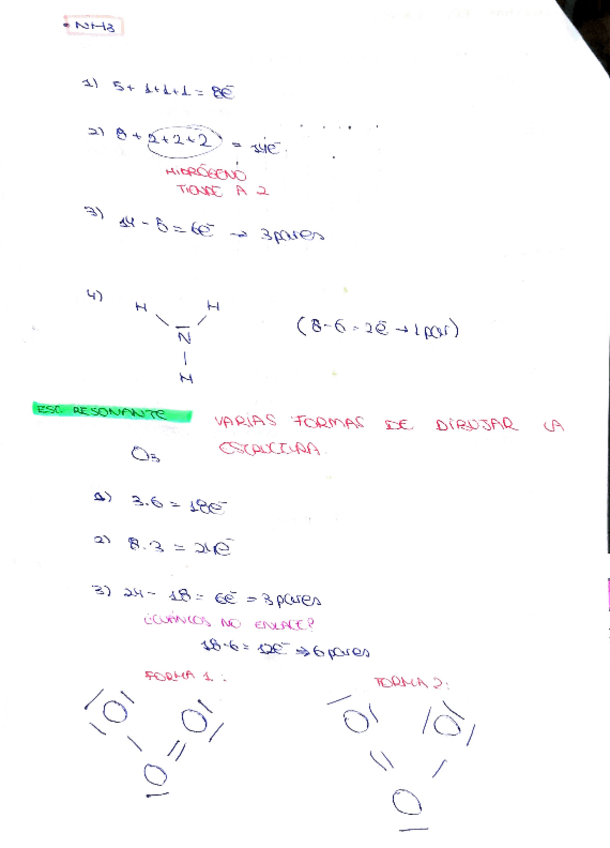 • NH3
1) 5+ 1+1+1 = 8e⁻
2) 8 + 2+2+2 = 14e⁻.
HIDRÓGENO
TIENDE A 2
3) 14 - 8 = 6e⁻ → 3 pares
4) H H
(8-6 = 2e⁻ → 1 par)
N
H
ESC. RESONANTE
VARIAS FORMAS DE DIBUJAR LA
O3 ESTRUCTURA.
1) 3.6 = 18e⁻
2) 8.3 = 24e⁻
3) 24 - 18 = 6e⁻ = 3 pares
¿CUÁNTOS NO ENLACE?
18-6 = 12e⁻ → 6 pares
FORMA 1.: FORMA 2:
O O O O
O O